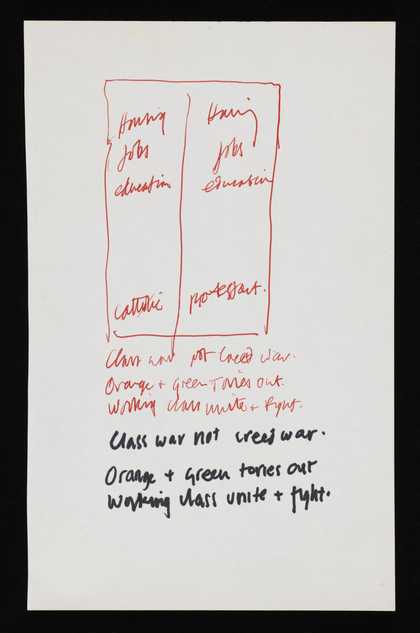 Housing Housing
Jobs Jobs
education education
Catholic protestant.
Class war not creed war.
Orange + Green Tories out.
Working class unite + fight.
Class war not creed war.
Orange + Green tories out
Working class unite + fight.